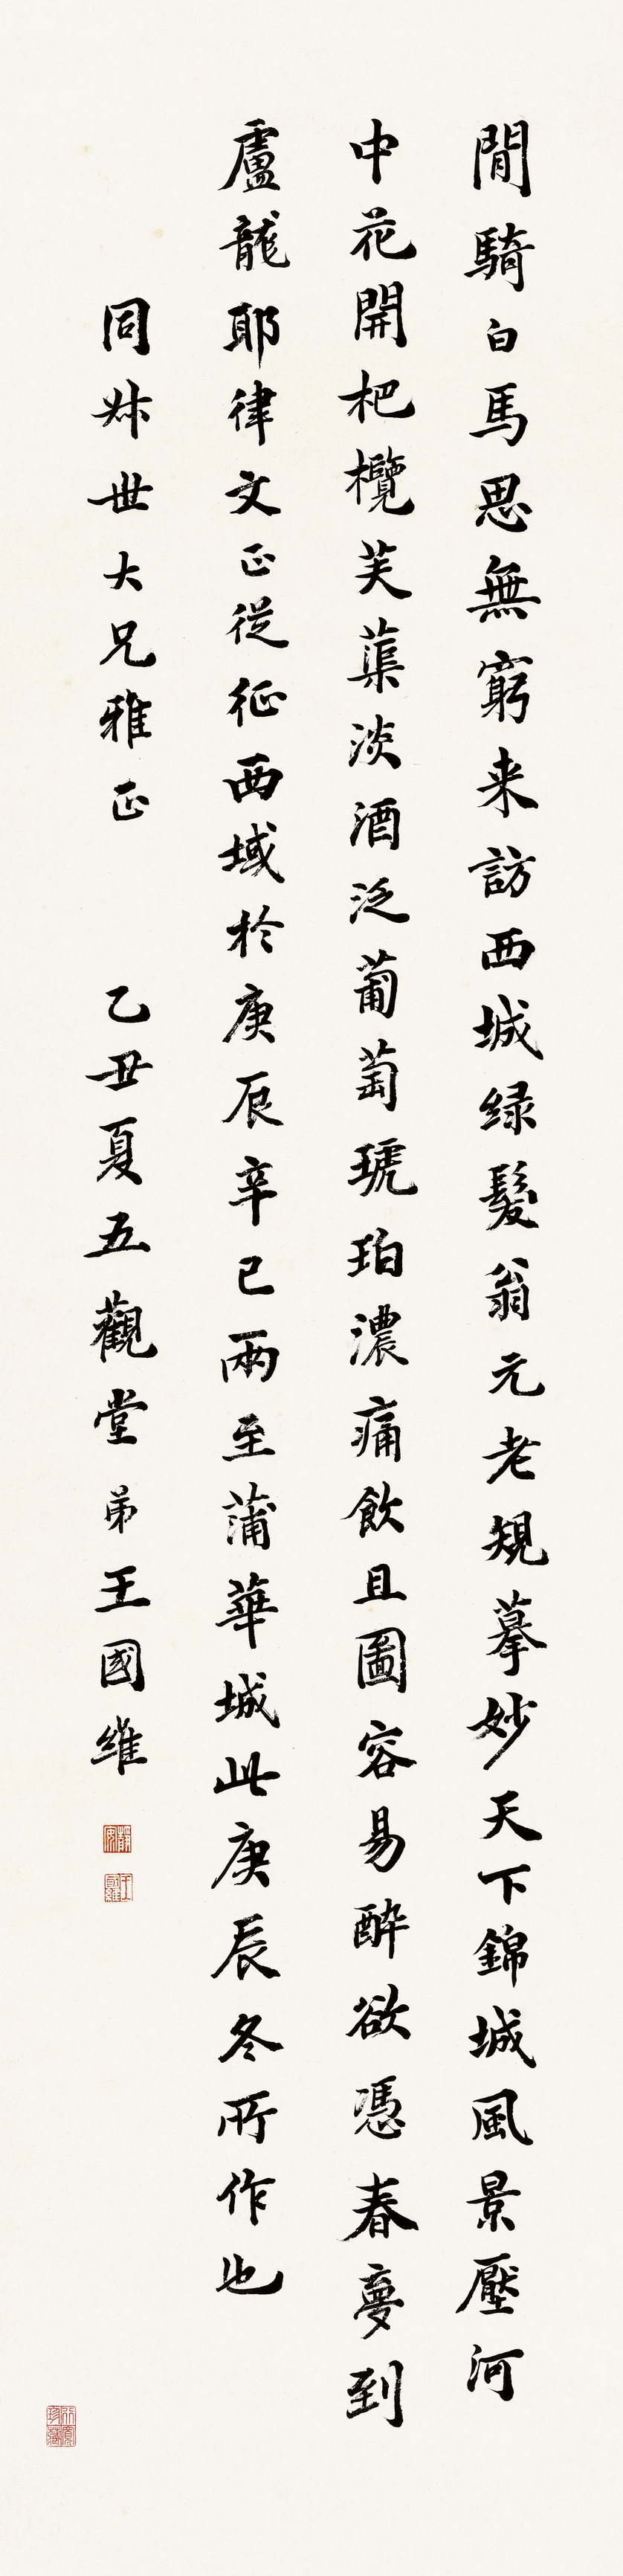 閒騎白馬思無窮来訪西城緑髮翁元老規摹妙天下錦城風景壓河
中花開杷欖芙蕖淡酒泛葡萄琥珀濃痛飲且圖容易醉欲憑春夢到
盧龍耶律文正從征西域於庚辰辛巳兩至蒲華城此庚辰冬所作也
同叔世大兄雅正
乙丑夏五觀堂弟王國維
靜安
王國維